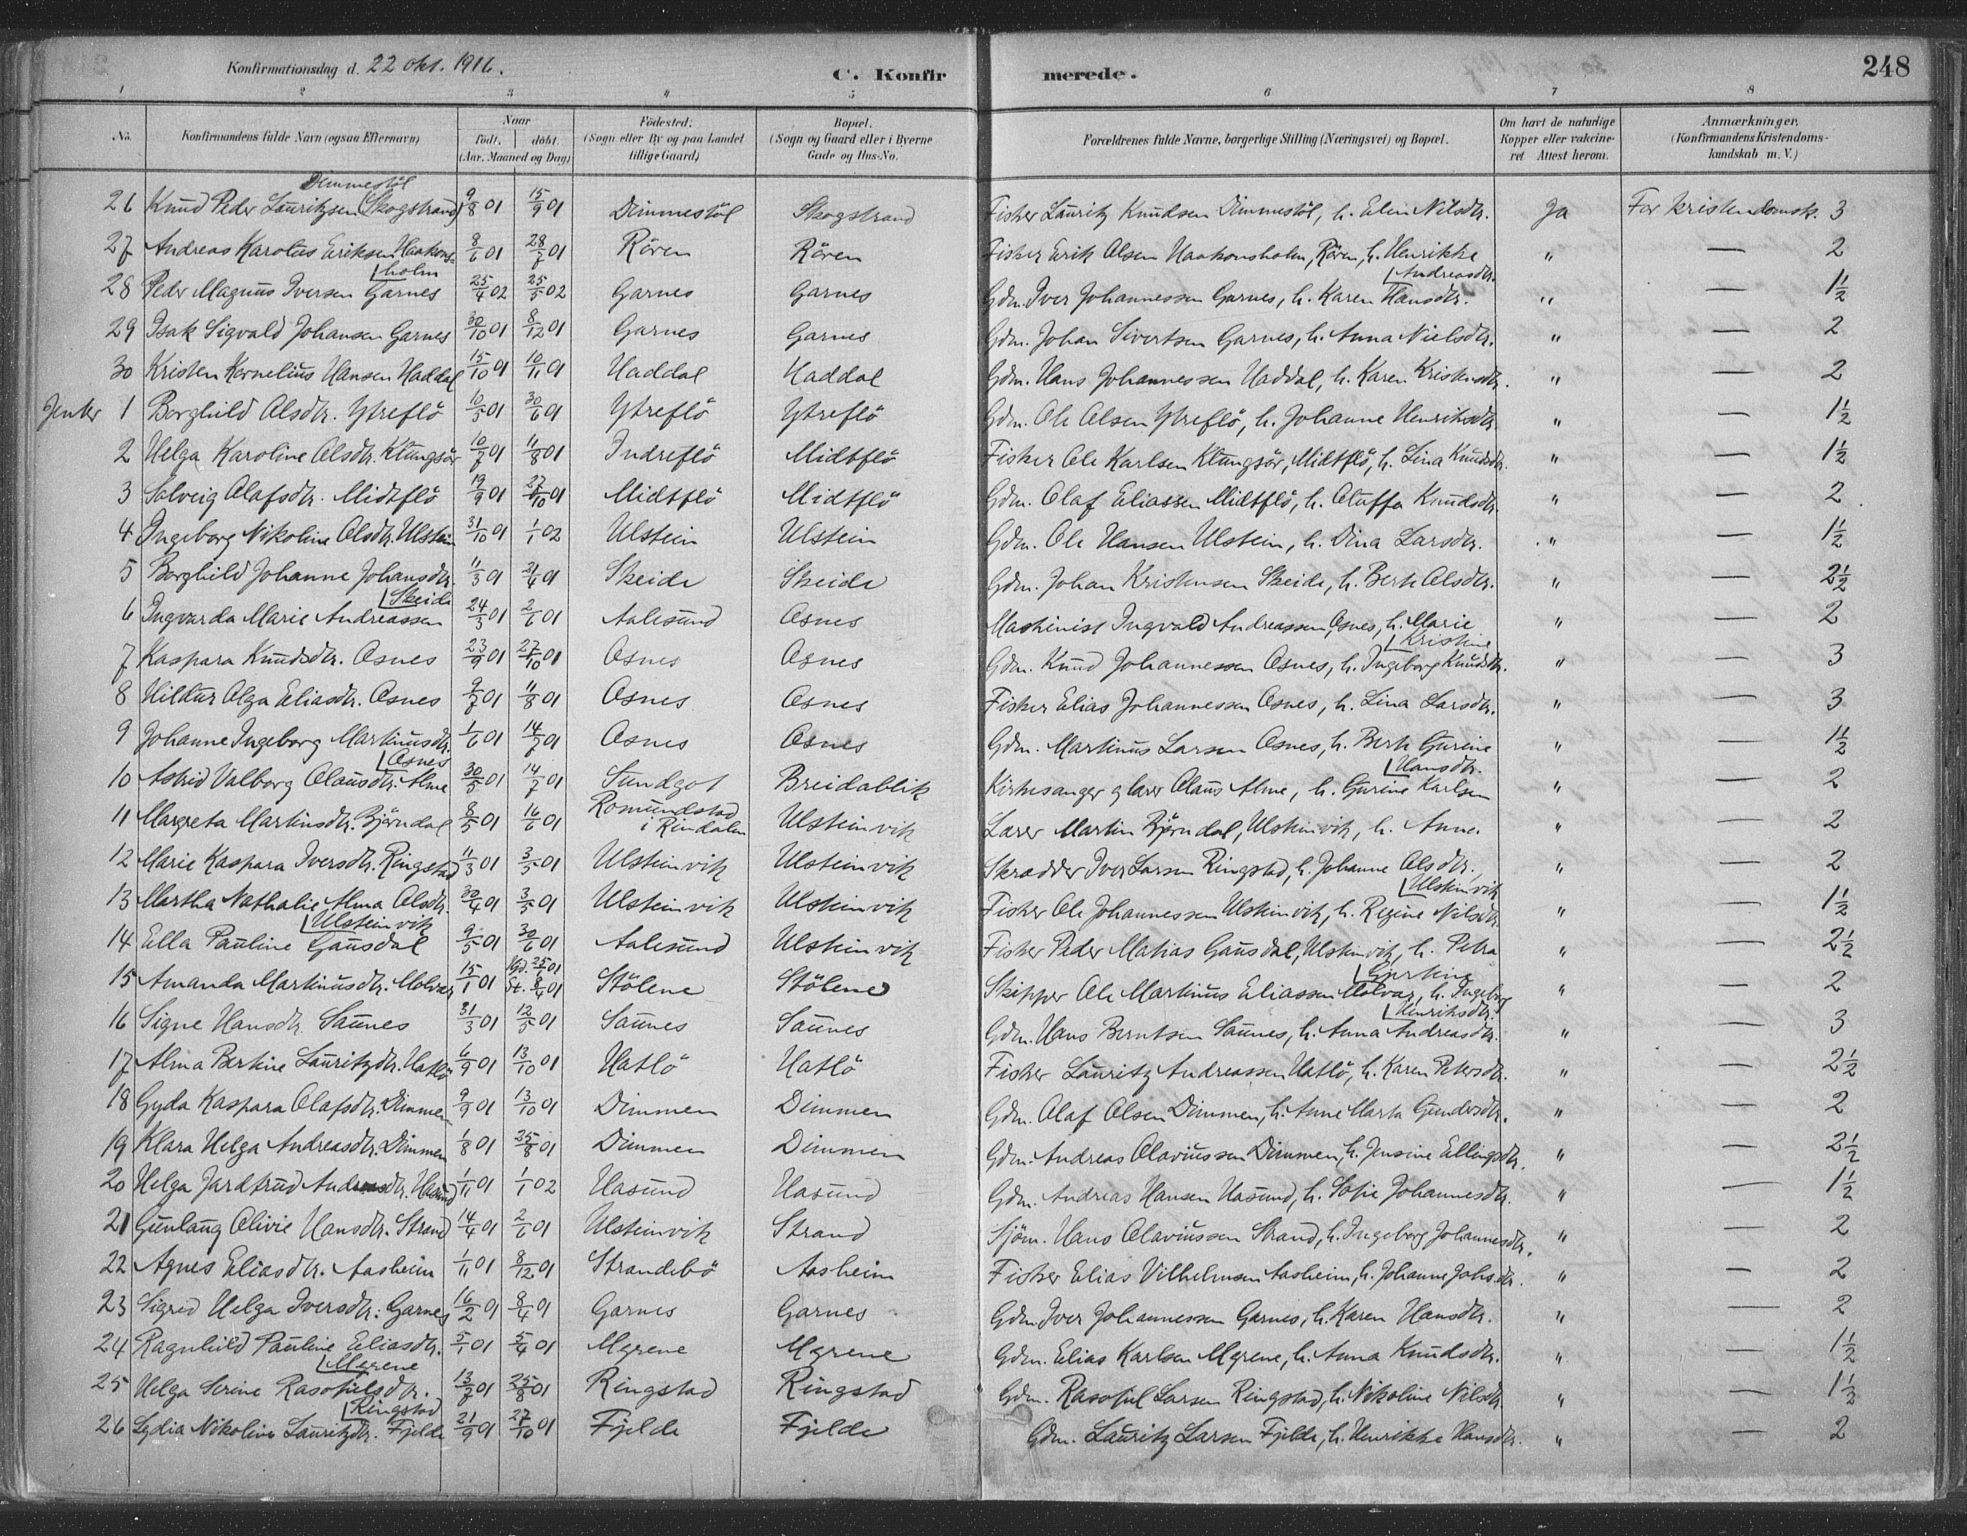 Konfirmationsdag d. 22 okt. 1916. C. Konfirmerede. 248
1 2 3 4 5 6 7 8
No. Konfirmandens fulde Navn (ogsaa Efternavn) Naar født, døbt. (Aar, Maaned og Dag) Fødested: (Sogn eller By og paa Landet tillige Gaard) Bopæl. (Sogn og Gaard eller i Byerne Gade og Hus-No. Forældrenes fulde Navne, borgerlige Stilling (Næringsvei) og Bopæl. Om havt de naturlige Kopper eller vakcineret Attest herom. Anmærkninger. (Konfirmandens Kristendomskundskab m. V.)
26 Knud Peder Lauritzsen Dimmestøl (Skogstrand) 9/8 01 15/9 01 Dimmestøl Skogstrand Fisker Lauritz Knudsen Dimmestøl, h. Elen Nilsdtr. Ja For kristendomsk. 3
27 Andreas Karolus Eriksen Haakonsholm 8/6 01 28/7 01 Røren Røren Fisker Erik Olsen Haakonsholm, Røren, h. Henrikke Andreasdtr. " — 2
28 Peder Magnus Iversen Garnes 25/4 02 25/5 02 Garnes Garnes Gdm. Iver Johannessen Garnes, h. Karen Hansdtr. " — 1½
29 Isak Sigvald Johansen Garnes 30/10 01 8/12 01 Garnes Garnes Gdm. Johan Sivertsen Garnes, h. Anna Nielsdtr. " — 2
30 Kristen Kornelius Hansen Haddal 15/10 01 10/11 01 Haddal Haddal Gdm. Hans Johannessen Haddal, h. Karen Kristensdtr. " — 2
Jenter 1 Borghild Olsdtr. Ytreflø 10/5 01 30/6 01 Ytreflø Ytreflø Gdm. Ole Olsen Ytreflø, h. Johanne Henriksdtr. " — 1½
2 Helga Karoline Olsdtr. Klungsør 10/7 01 11/8 01 Indreflø Midtflø Fisker Ole Karlsen Klungsør, Midtflø, h. Lina Knudsdtr. " — 1½
3 Solveig Olafsdtr. Midtflø 19/9 01 27/10 01 Midtflø Midtflø Gdm. Olaf Eliassen Midtflø, h. Oluffa Knudsdtr. " — 2
4 Ingeborg Nikoline Olsdtr. Ulstein 31/10 01 1/1 02 Ulstein Ulstein Gdm. Ole Hansen Ulstein, h. Dina Larsdtr. " — 1½
5 Borghild Johanne Johansdtr. Skeide 11/3 01 21/4 01 Skeide Skeide Gdm. Johan Kristensen Skeide, h. Berte Olsdtr. " — 2½
6 Ingvarda Marie Andreassen 24/3 01 2/6 01 Aalesund Osnes Maskinist Ingvald Andreassen, Osnes, h. Marie Kristine " — 2
7 Kaspara Knudsdtr. Osnes 23/9 01 27/10 01 Osnes Osnes Gdm. Knud Johannessen Osnes, h. Ingeborg Knudsdtr. " — 3
8 Hildur Olga Eliasdtr. Osnes 9/7 01 11/8 01 Osnes Osnes Fisker Elias Johannessen Osnes, h. Lina Larsdtr. " — 3
9 Johanne Ingeborg Martinusdtr. Osnes 1/6 01 14/7 01 Osnes Osnes Gdm. Martinus Larsen Osnes, h. Berte Gurine Hansdtr. " — 1½
10 Astrid Valborg Olausdtr. Alme 30/5 01 14/7 01 Sundgot Breidablik Kirkesanger og lærer Olaus Alme, h. Gurine Karlsen " — 2
11 Margreta Martinsdtr. Bjørndal 8/5 01 16/6 01 Romundstad i Rindalen Ulsteinvik Lærer Martin Bjørndal, Ulsteinvik, h. Anne. " — 2
12 Marie Kaspara Iversdtr. Ringstad 11/3 01 3/5 01 Ulsteinvik Ulsteinvik Skrædder Iver Larsen Ringstad, h. Johanne Olsdtr. Ulsteinvik " — 2
13 Martha Nathalie Alma Olsdtr. Ulsteinvik 30/4 01 3/5 01 Ulsteinvik Ulsteinvik Fisker Ole Johannessen Ulsteinvik, h. Regine Nilsdtr. " — 1½
14 Ella Pauline Gausdal 9/5 01 30/6 01 Aalesund Ulsteinvik Fisker Peder Mathias Gausdal, Ulsteinvik, h. Petra Gurtine " — 2½
15 Amanda Martinusdtr. Molvær 15/1 01 St. 8/4 01 Stølene Stølene Skipper Ole Martinus Eliassen Molvær, h. Ingeborg Henriksdtr. " — 2
16 Signe Hansdtr. Saunes 31/3 01 12/5 01 Saunes Saunes Gdm. Hans Berntsen Saunes, h. Anna Andreasdtr. " — 3
17 Alma Bertine Lauritzdtr. Hatlø 6/9 01 13/10 01 Hatlø Hatlø Fisker Lauritz Andreassen Hatlø, h. Karen Petersdtr. " — 2½
18 Gyda Kaspara Olafsdtr. Dimmen 9/9 01 13/10 01 Dimmen Dimmen Gdm. Olaf Olsen Dimmen, h. Anne Marta Gundersdtr. " — 2
19 Klara Helga Andreasdtr. Dimmen 1/8 01 25/8 01 Dimmen Dimmen Gdm. Andreas Olaviussen Dimmen, h. Jensine Ellingsdtr. " — 2½
20 Helga Jardtrud Andreasdtr. Hasund 1/11 01 1/1 02 Hasund Hasund Gdm. Andreas Hansen Hasund, h. Sofie Johannesdtr. " — 1½
21 Gunlaug Olivie Hansdtr. Strand 14/4 01 2/6 01 Ulsteinvik Strand Sjøm. Hans Olaviussen Strand, h. Ingeborg Johannesdtr. " — 2
22 Agnes Eliasdtr. Aasheim 1/11 01 8/12 01 Strandebø Aasheim Fisker Elias Vilhelmsen Aasheim, h. Johanne Johsdtr. " — 2
23 Sigrid Helga Iversdtr. Garnes 16/2 01 8/4 01 Garnes Garnes Gdm. Iver Johannessen Garnes, h. Karen Hansdtr. " — 2
24 Ragnhild Pauline Eliasdtr. Myrene 5/1 01 5/4 01 Myrene Myrene Gdm. Elias Karlsen Myrene, h. Anna Knudsdtr. " — 1½
25 Helga Serine Rasofielsdtr. Ringstad 13/7 01 25/8 01 Ringstad Ringstad Gdm. Rasofiel Larsen Ringstad, h. Nikoline Nilsdtr. " — 1½
26 Lydia Nikoline Lauritzdtr. Fjelde 21/9 01 27/10 01 Fjelde Fjelde Gdm. Lauritz Larsen Fjelde, h. Henrikke Hansdtr. " — 2